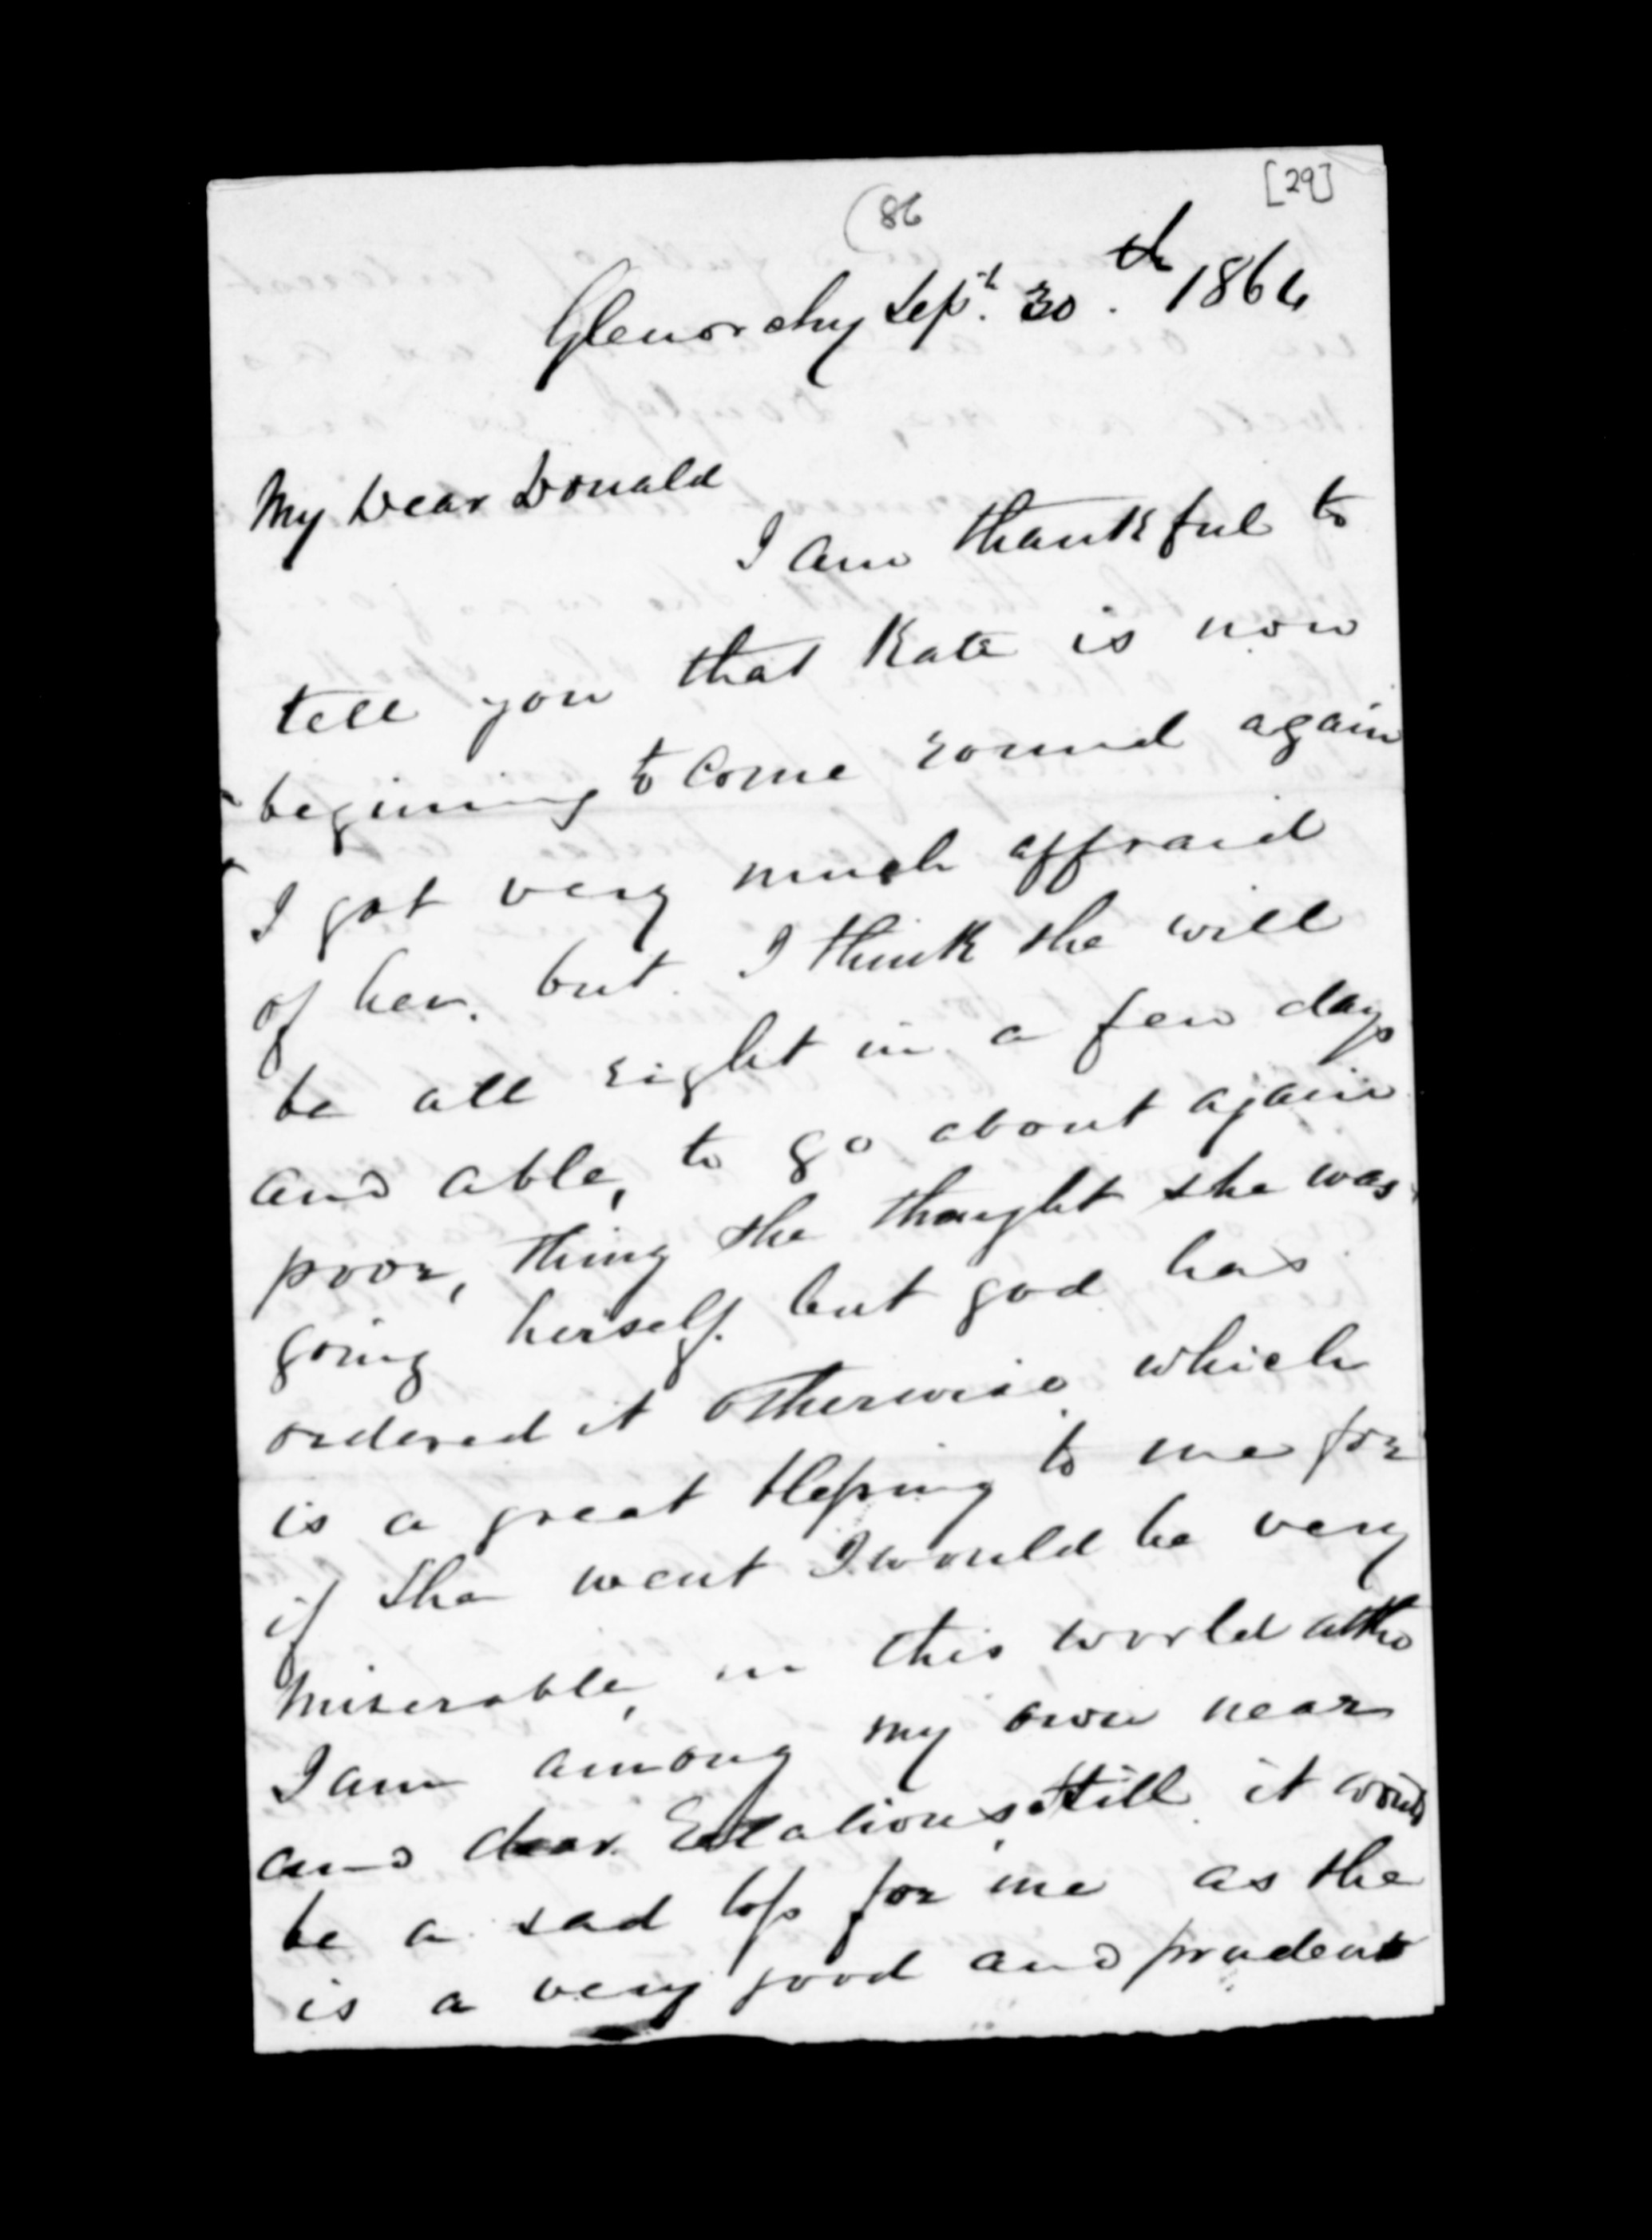 [29]
(86
Glenorchy Sept. 30th. 1864
My Dear Donald
I am thankful to
tell you that Kate is now
begining to come round again
I got very much affraid
of her. but I think she will
be all right in a few days
and able, to go about again
poor, thing she thought she was
going herself. but god has
ordered it otherwise, which
is a great blessing to me for
if she went I would be very
miserable, in this world altho
I am among my own near
and dear relations still it would
be a sad loss for me as she
is a very good and prudent